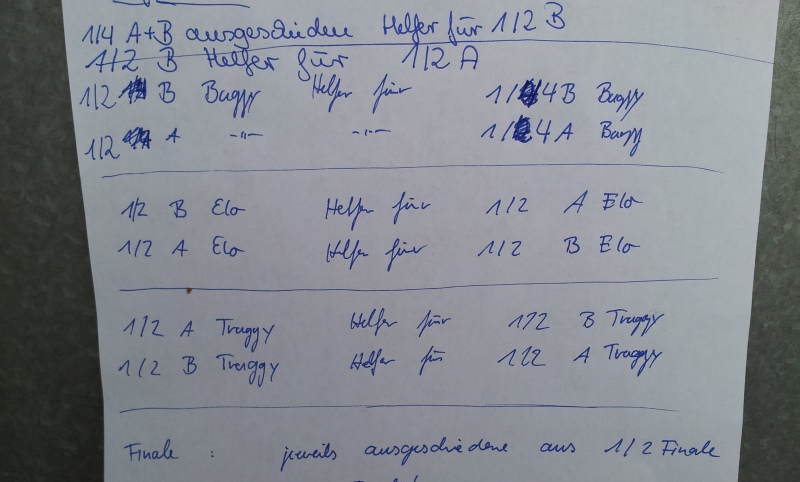 1/4 A+B ausgeschieden Helfer für 1/2 B
1/2 B Helfer für 1/2 A
1/2 B Buggy Helfer für 1/4 B Buggy
1/2 A -"- -"- 1/4 A Buggy
1/2 B Elo Helfer für 1/2 A Elo
1/2 A Elo Helfer für 1/2 B Elo
1/2 A Truggy Helfer für 1/2 B Truggy
1/2 B Truggy Helfer für 1/2 A Truggy
Finale : jeweils ausgeschiedene aus 1/2 Finale